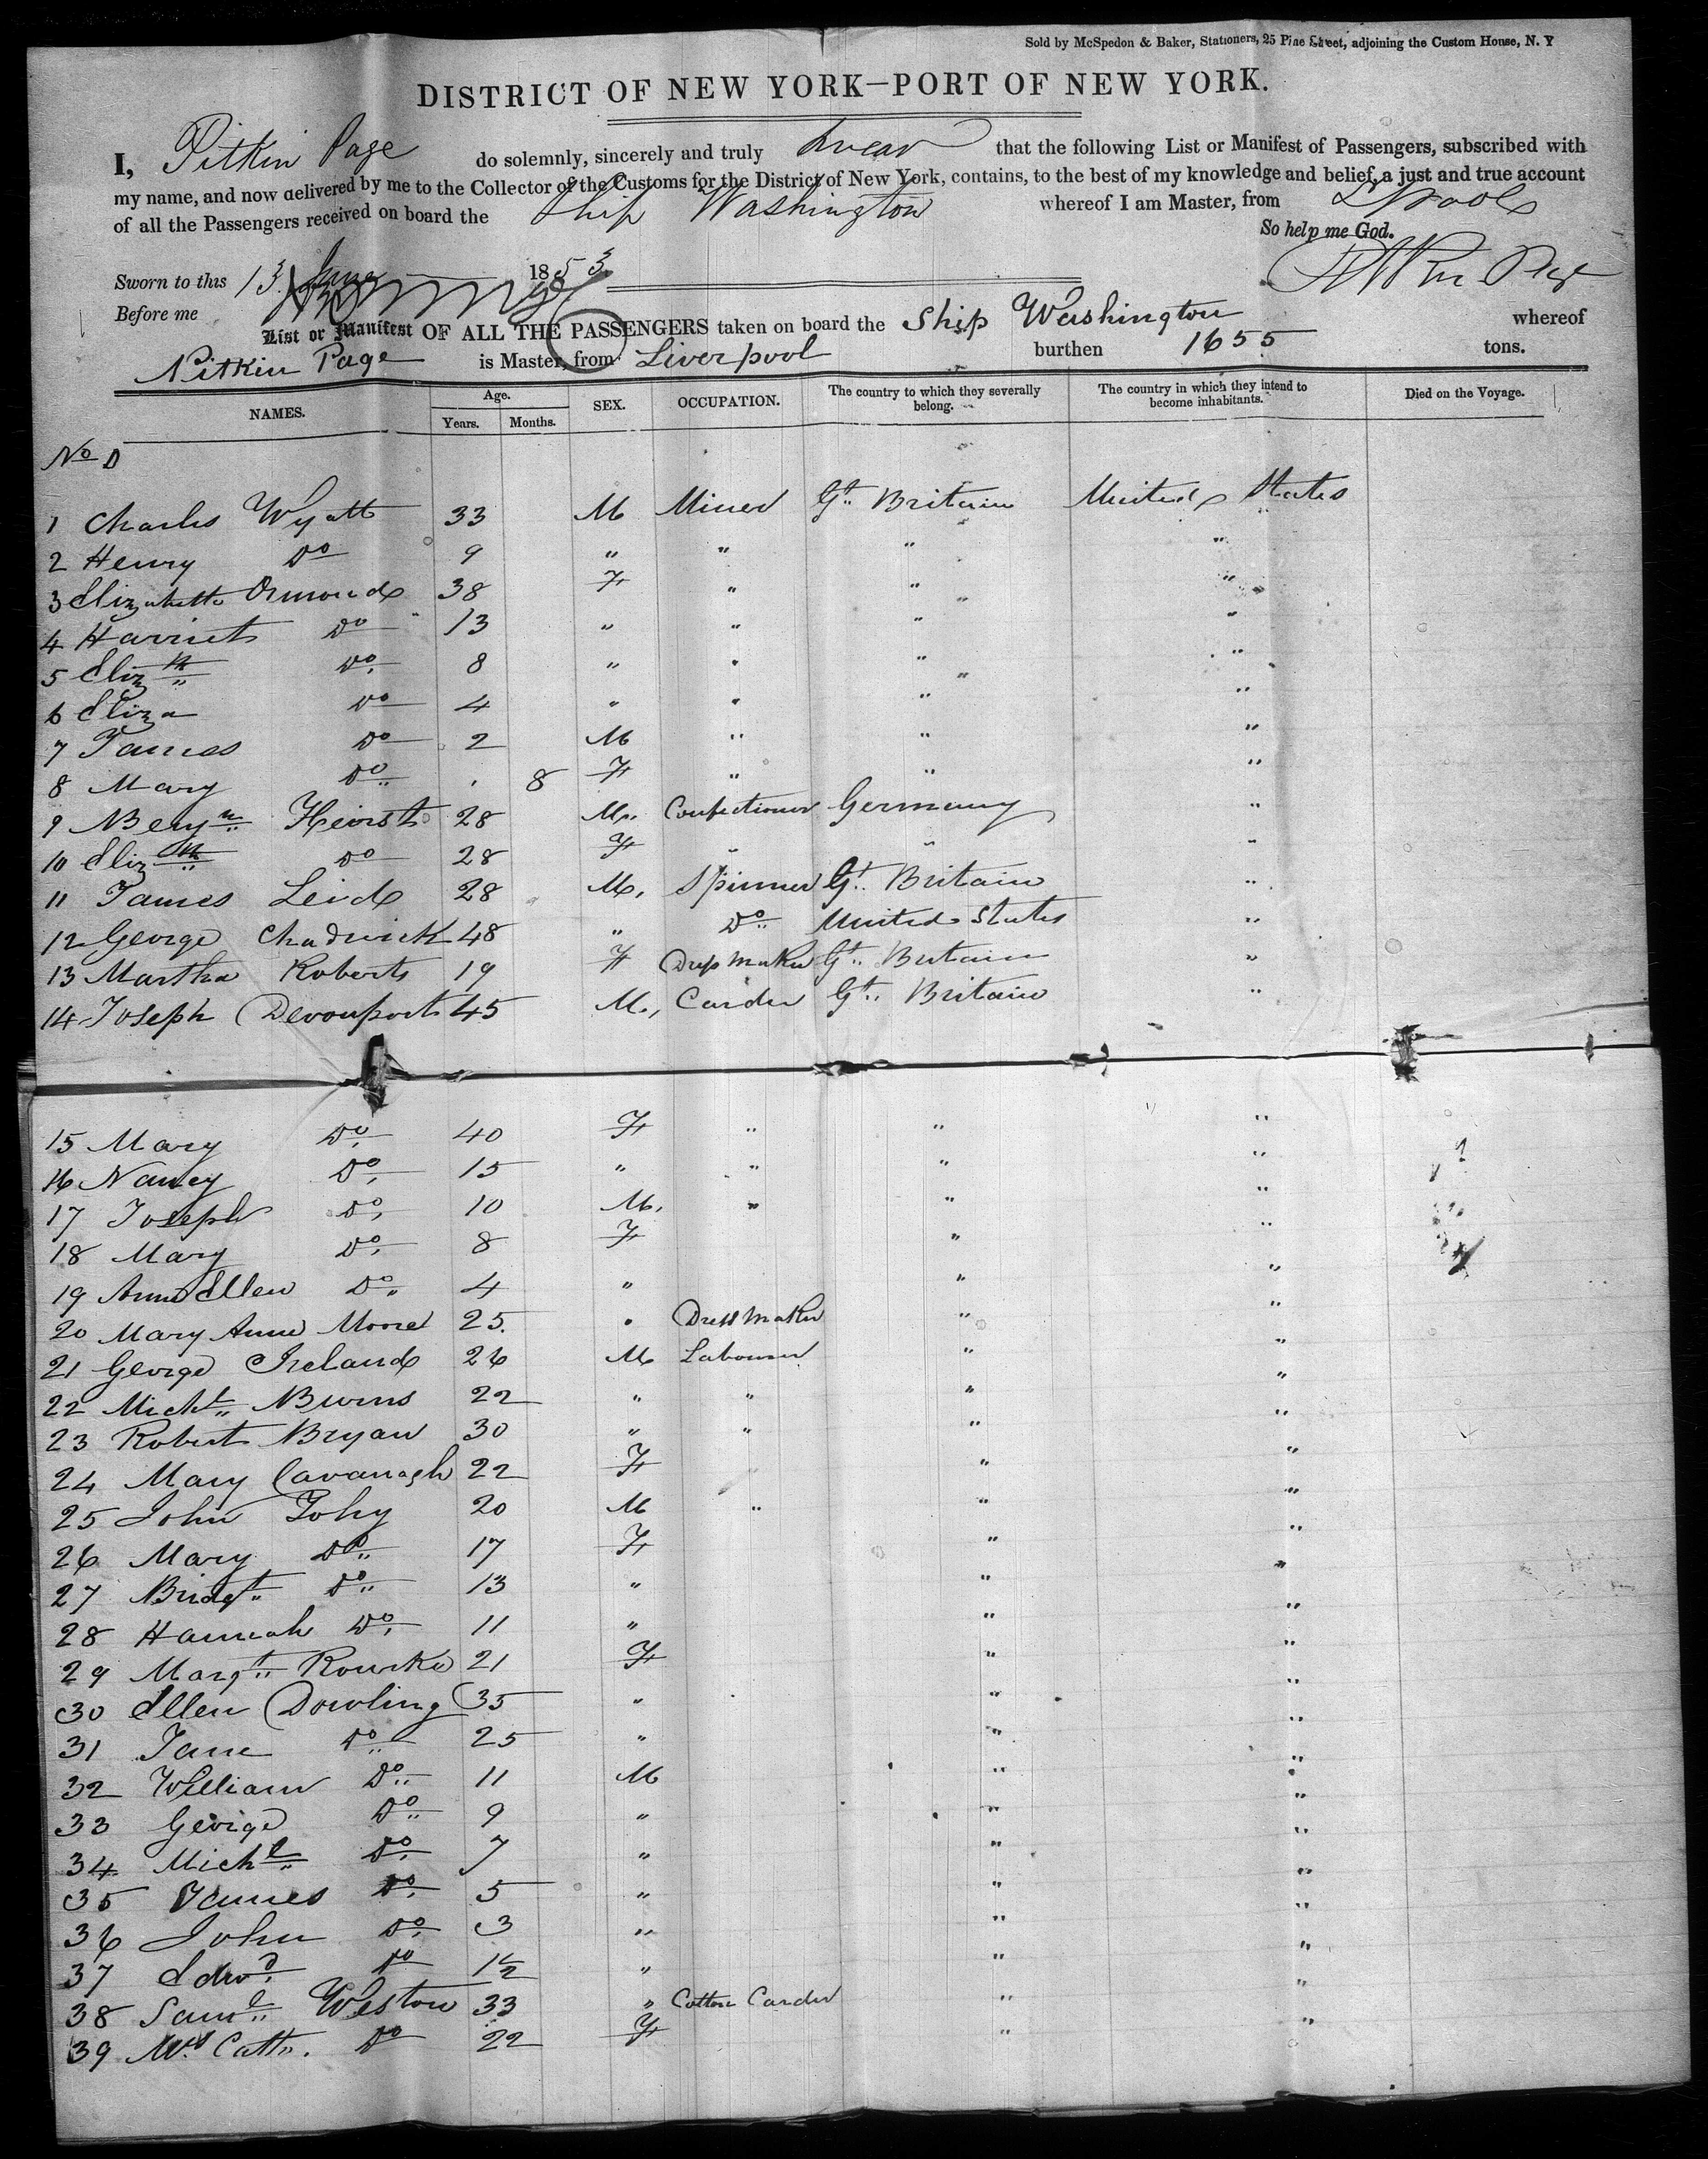 Sold by McSpedon & Baker, Stationers, 25 Pine Street, adjoining the Custom House, N. Y
DISTRICT OF NEW YORK—PORT OF NEW YORK.
I, Pitkin Page do solemnly, sincerely and truly swear that the following List or Manifest of Passengers, subscribed with
my name, and now delivered by me to the Collector of the Customs for the District of New York, contains, to the best of my knowledge and belief, a just and true account
of all the Passengers received on board the Ship Washington whereof I am Master, from L'pool
So help me God.
Sworn to this 13 June 1853 Pitkin Page
Before me
List or Manifest OF ALL THE PASSENGERS taken on board the Ship Washington whereof
Pitkin Page is Master, from Liverpool burthen 1655 tons.
NAMES. Age. Years. Months. SEX. OCCUPATION. The country to which they severally belong. The country in which they intend to become inhabitants. Died on the Voyage.
No
1 Charles Wyatt 33 M Miner Gt. Britain United States
2 Henry Do 9 " " " "
3 Elizabeth Ormond 38 F " " "
4 Harriet Do 13 " " " "
5 Elizth Do 8 " " " "
6 Eliza Do 4 " " " "
7 James Do 2 M " " "
8 Mary Do 8 F " " "
9 Benjn Heirst 28 M. Confectioner Germany "
10 Elizth Do 28 F " " "
11 James Leid 28 M. Spinner Gt. Britain "
12 George Chadwick 48 " Do United States "
13 Martha Roberts 19 F Dress Maker Gt. Britain "
14 Joseph Devonport 45 M. Carder Gt. Britain "
15 Mary Do 40 F " " "
16 Nancy Do 15 " " " "
17 Joseph Do 10 M. " " "
18 Mary Do 8 F " "
19 Ann Ellen Do 4 " " "
20 Mary Anne Moore 25 " Dress Maker " "
21 George Ireland 26 M Labourer " "
22 Michl Burns 22 " " " "
23 Robert Bryan 30 " " " "
24 Mary Cavanagh 22 F " "
25 John Fohy 20 M " " "
26 Mary Do 17 F " "
27 Bridgt Do 13 " " "
28 Hannah Do 11 " " "
29 Margt Rourke 21 F " "
30 Ellen Dowling 35 " " "
31 Jane Do 25 " " "
32 William Do 11 M " "
33 George Do 9 " " "
34 Michl Do 7 " " "
35 James Do 5 " " "
36 John Do 3 " " "
37 Edwd Do 1½ " " "
38 Saml Weston 33 " Cotton Carder " "
39 Mrs Cath. Do 22 F " "